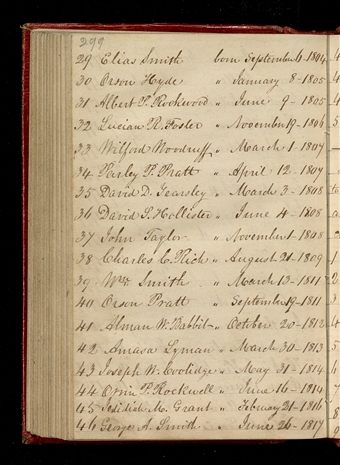 299
29 Elias Smith born September 6-1804
30 Orson Hyde " January 8-1805
31 Albert P. Rockwood " June 9-1805
32 Lucian R. Foster " November 19-1806
33 Wilford Woodruff " March 1-1807
34 Parley P. Pratt " April 12-1807
35 David D. Yearsley " March 3-1808
36 David S. Hollister " June 4-1808
37 John Taylor " November 1-1808
38 Charles C. Rich " August 21-1809
39 Wm Smith " March 13-1811
40 Orson Pratt " September 19-1811
41 Alman W. Babbit " October 20-1812
42 Amasa Lyman " March 30-1813
43 Joseph W. Coolidge " May 31-1814
44 Orrin P. Rockwell " June 16-1814
45 Jedidiah M. Grant " February 21-1816
46 George A. Smith " June 26-1817